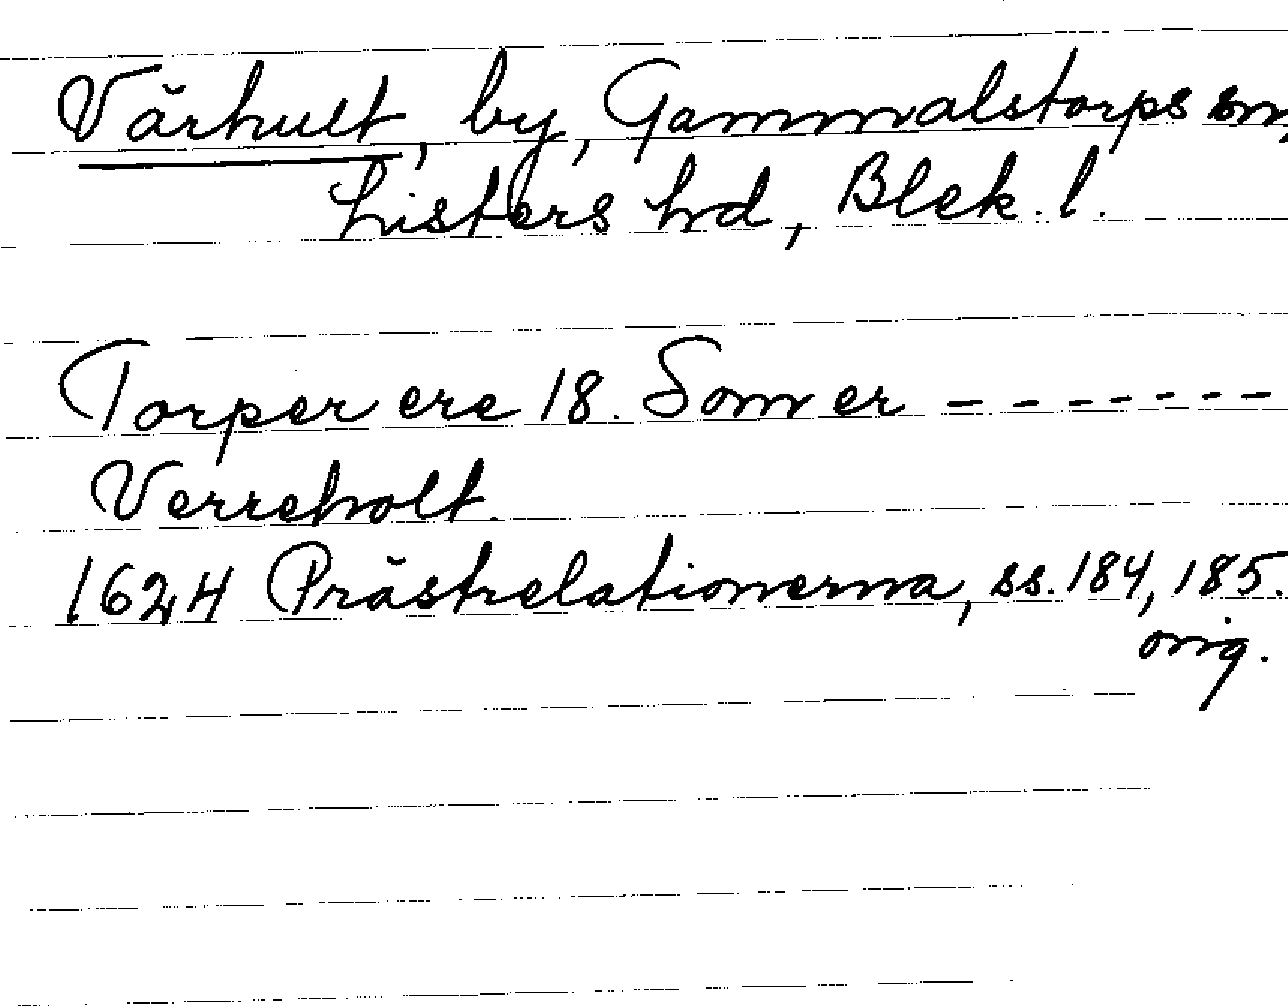 Värhult, by, Gammalstorps sn
Listers hd, Blek. l.
Torper ere 18. Som er - - - - - - -
Verreholt.
1624 Prästrelationerna, ss. 184, 185.
orig.